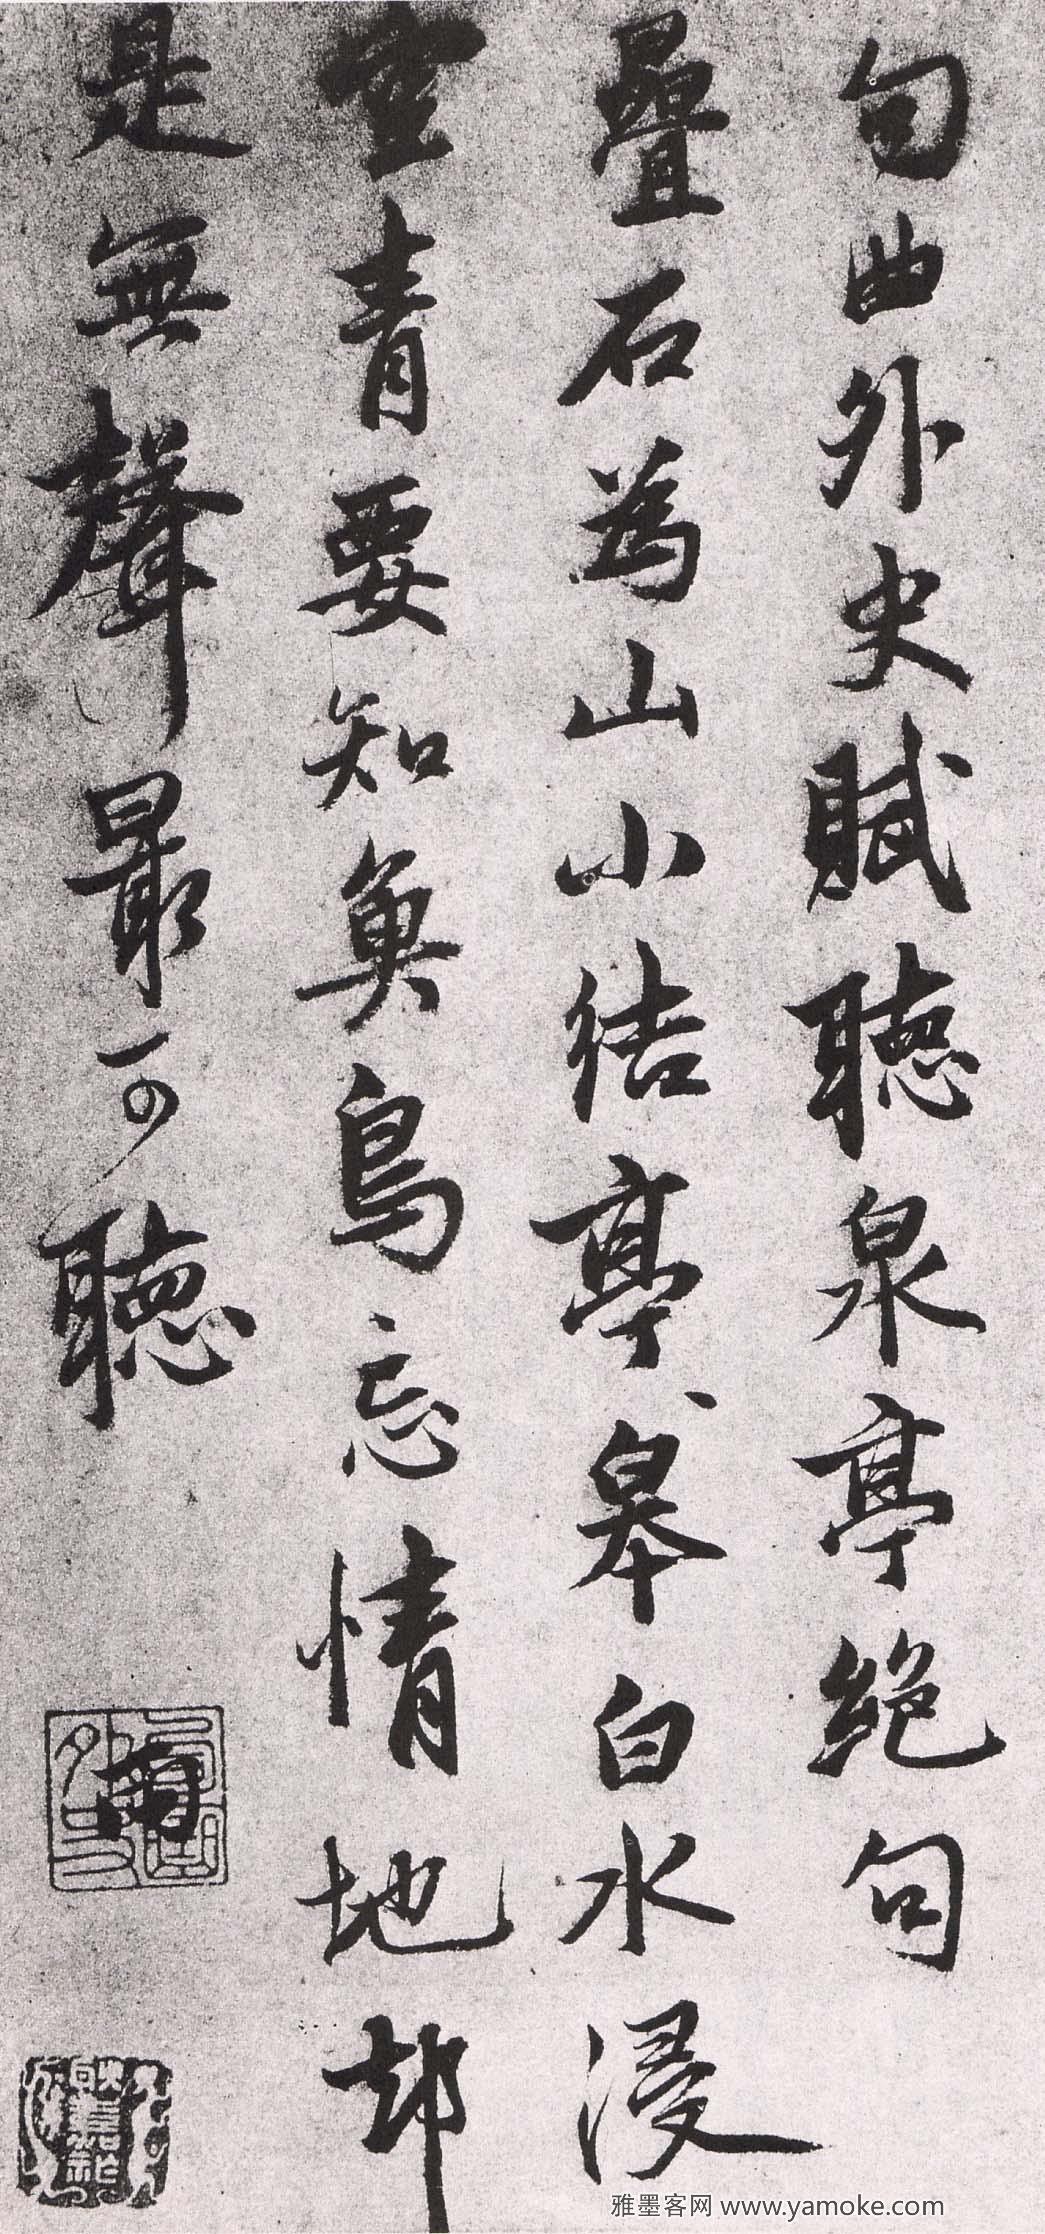 句曲外史賦聴泉亭絶句
疊石為山小結亭、皋白水浸
空青要知魚鳥忘情地却
是無聲最可聴
雨
句曲外史
雅墨客网 www.yamoke.com